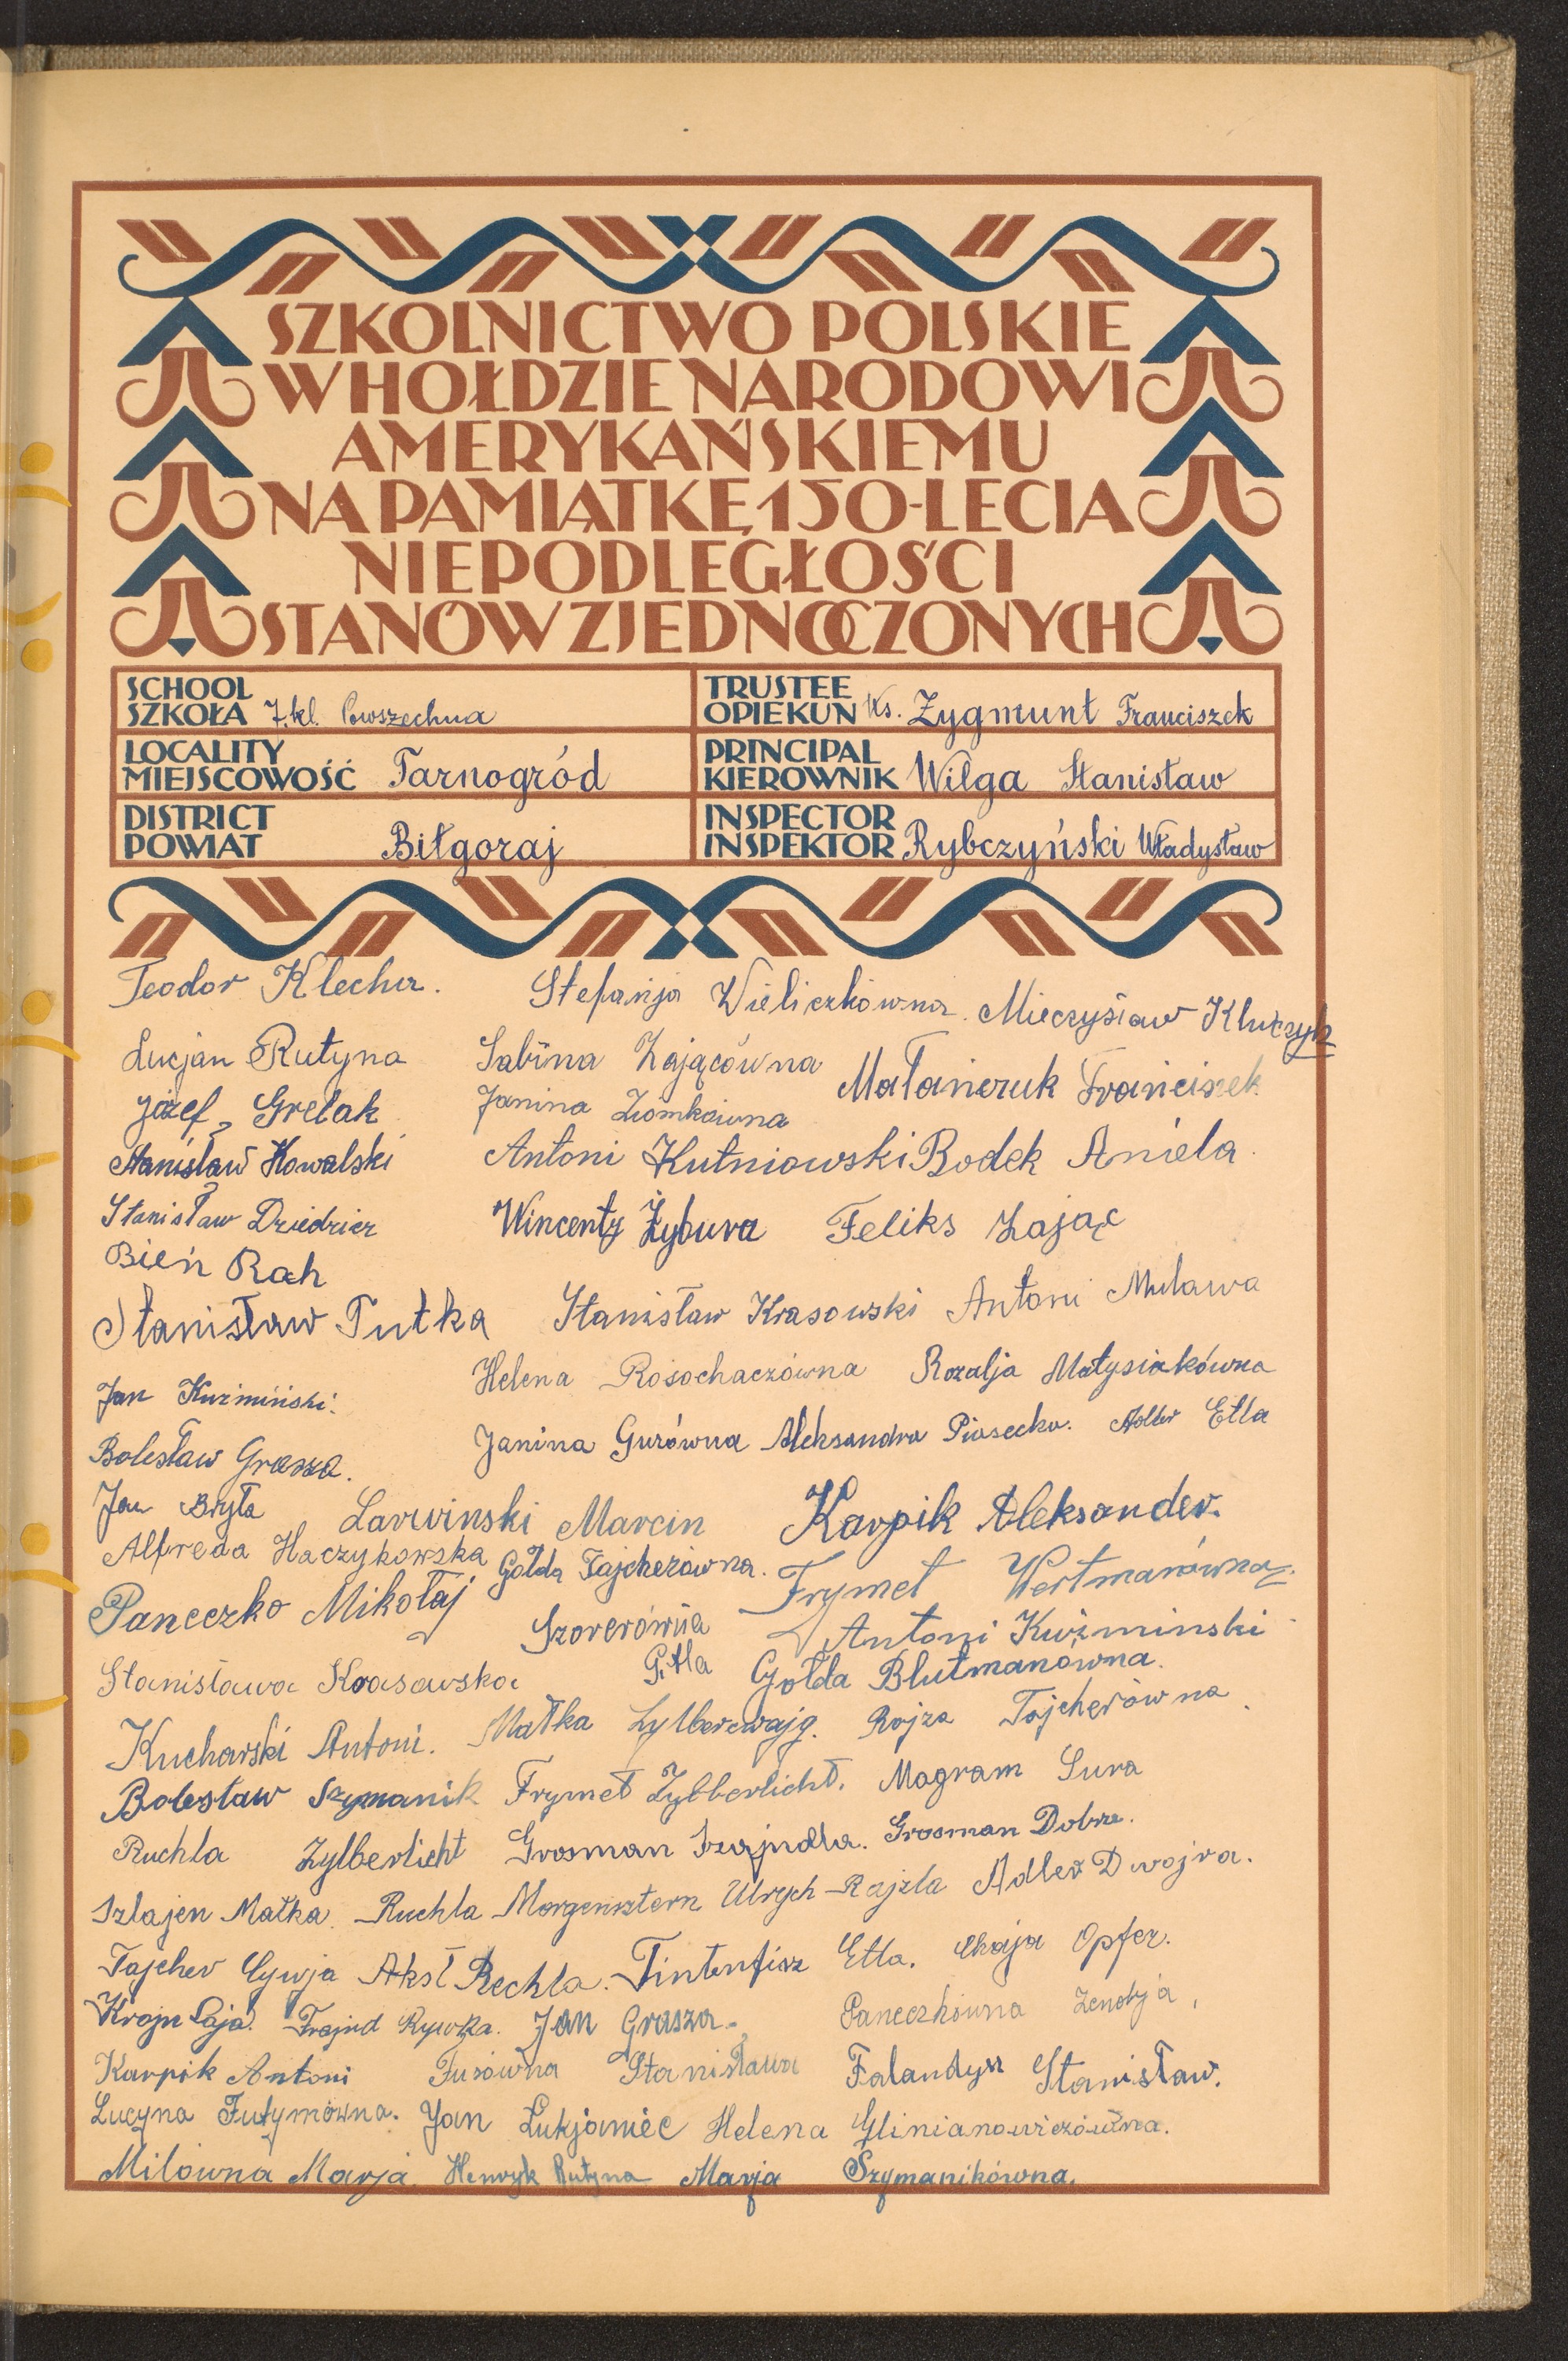 SZKOLNICTWO POLSKIE
W HOŁDZIE NARODOWI
AMERYKAŃSKIEMU
NA PAMIĄTKĘ 150-LECIA
NIEPODLEGŁOŚCI
STANÓW ZJEDNOCZONYCH
SCHOOL
SZKOŁA 7.kl. Powszechna
TRUSTEE
OPIEKUN Ks. Zygmunt Franciszek
LOCALITY
MIEJSCOWOŚĆ Tarnogród
PRINCIPAL
KIEROWNIK Wilga Stanisław
DISTRICT
POWIAT Biłgoraj
INSPECTOR
INSPEKTOR Rybczyński Władysław
Teodor Klecha. Stefanja Wieliczkówna. Mieczysław Kluczyk
Lucjan Rutyna Sabina Zającówna Małańczuk Franciszek
Józef Grelak Janina Ziomkówna
Stanisław Kowalski Antoni Kutniowski Bodek Aniela.
Stanisław Dziedzier Wincenty Żybura Feliks Zając
Bień Rah
Stanisław Tutka Stanisław Krasowski Antoni Mulawa
Jan Kuźmiński. Helena Rosochaczówna Rozalja Matysiakówna
Bolesław Grasza. Janina Gurówna Aleksandra Piasecka. Adler Etla
Jan Bryła Larwinski Marcin Karpik Aleksander.
Alfreda Haczykowska Gołda Tajcherówna. Frymet Wertmanówna.
Paneczko Mikołaj Szorerówna Antoni Kuźminski
Stanisława Krasowska Gitla Gołda Blutmanówna.
Kucharski Antoni. Małka Zylbercwajg. Rojza Tajcherówna.
Bolesław Szymanik Frymet Zylberlicht. Magram Sura
Ruchla Zylberlicht Grosman Szajndla. Grosman Dobra.
Szlajen Małka. Ruchla Morgensztern Ulrych Rajzla Adler Dwojra.
Tajcher Cywja Akst Rechla. Tintenfisz Etla. Chaja Opfer.
Krajn Łaja. Frajnd Rywka. Jan Grasza. Paneczkówna Zenobja,
Karpik Antoni Fusówna Stanisława Falandysz Stanisław.
Lucyna Futymówna. Jan Łukjaniec Helena Glinianowiczówna.
Milówna Marja. Henryk Rutyna Marja Szymanikówna.